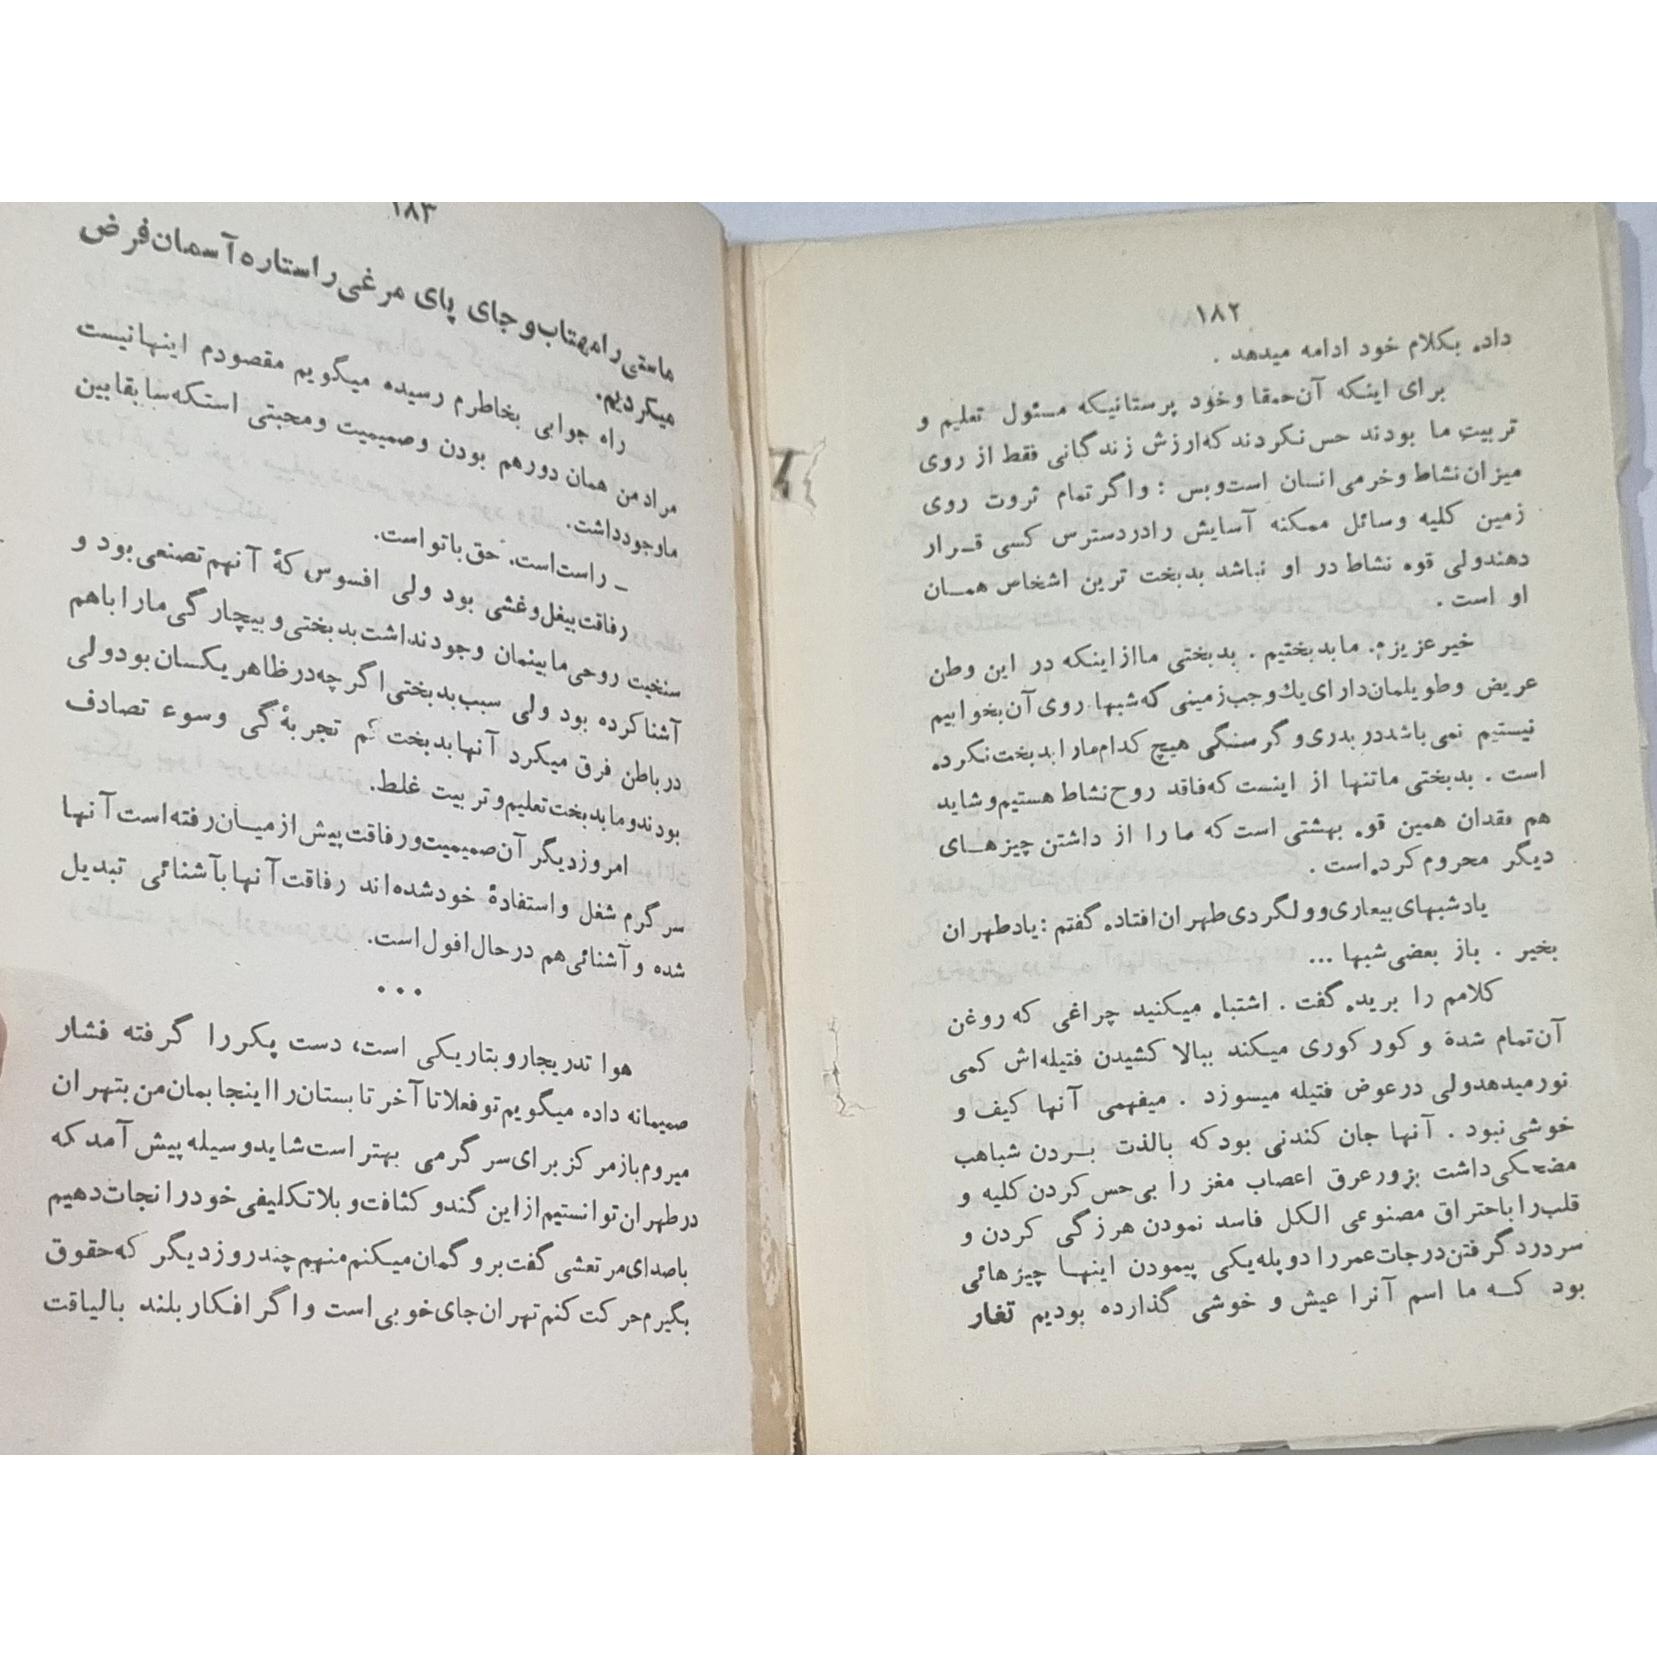 ۱۸۲
داده بکلام خود ادامه میدهد .
برای اینکه آن حمقا وخود پرستانیکه مسئول تعلیم و
تربیت ما بودند حس نکردند که ارزش زندگانی فقط از روی
میزان نشاط وخرمی انسان است وبس : واگر تمام ثروت روی
زمین کلیه وسائل ممکنه آسایش رادردسترس کسی قرار
دهندولی قوه نشاط در او نباشد بدبخت ترین اشخاص همان
او است .
خیر عزیزم. مابدبختیم . بدبختی مااز اینکه در این وطن
عریض وطویلمان دارای یك وجب زمینی که شبها روی آن بخوابیم
نیستیم نمی باشد در بدری و گرسنگی هیچ کدام مارا بدبخت نکرده
است . بدبختی ماتنها از اینست که فاقد روح نشاط هستیم وشاید
هم فقدان همین قوه بهشتی است که ما را از داشتن چیزهای
دیگر محروم کرده است .
یاد شبهای بیعاری و ولگردی طهران افتاده گفتم : یاد طهران
بخیر . باز بعضی شبها ...
کلامم را بریده گفت . اشتباه میکنید چراغی که روغن
آن تمام شدهٔ و کور کوری میکند ببالا کشیدن فتیله اش کمی
نور میدهدولی در عوض فتیله میسوزد . میفهمی آنها کیف و
خوشی نبود . آنها جان کندنی بود که بالذت بردن شباهب
مضحکی داشت بزور عرق اعصاب مغز را بی حس کردن کلیه و
قلب را با حتراق مصنوعی الکل فاسد نمودن هرزگی کردن و
سردرد گرفتن درجات عمر را دو پله یکی پیمودن اینها چیزهائی
بود که ما اسم آنرا عیش و خوشی گذارده بودیم تغار
۱۸۳
ماستی را مهتاب و جای پای مرغی را ستاره آسمان فرض
میکردیم.
راه جوابی بخاطرم رسیده میگویم مقصودم اینها نیست
مراد من همان دور هم بودن وصمیمیت ومحبتی استکه سابقا بین
ماوجودداشت.
ـ راست است. حق با تو است.
رفاقت بیغل وغشی بود ولی افسوس کهٔ آنهم تصنعی بود و
سنخیت روحی ما بینمان وجود نداشت بدبختی و بیچارگی مارا باهم
آشنا کرده بود ولی سبب بدبختی اگر چه در ظاهر یکسان بود ولی
در باطن فرق میکرد آنها بدبخت کم تجربهٔ گی وسوء تصادف
بودند و ما بدبخت تعلیم و تربیت غلط.
امروز دیگر آن صمیمیت و رفاقت پیش از میان رفته است آنها
سرگرم شغل واستفادهٔ خود شده اند رفاقت آنها بآشنائی تبدیل
شده و آشنائی هم در حال افول است.
...
هوا تدریجا رو بتاریکی است، دست پکر را گرفته فشار
صمیمانه داده میگویم تو فعلا تا آخر تابستان را اینجا بمان من بتهران
میروم باز مرکز برای سرگرمی بهتر است شاید وسیله پیش آمد که
در طهران توانستیم از این گند و کثافت و بلا تکلیفی خود را نجات دهیم
باصدای مرتعشی گفت برو گمان میکنم منهم چند روز دیگر که حقوق
بگیرم حرکت کنم تهران جای خوبی است واگر افکار بلند بالیاقت